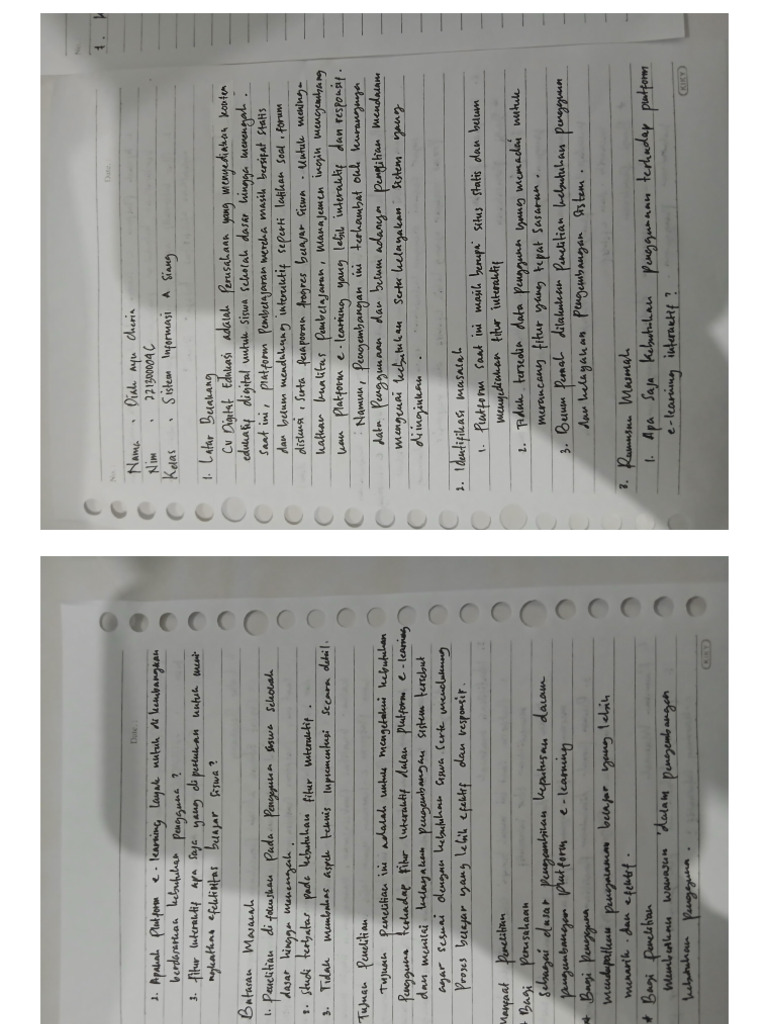 No.
Date.
Nama . Diah ayu cheria
Nim . 221300009C
Kelas . Sistem Informasi A Siang
1. Latar Belakang
CV Digital Edukasi adalah Perusahaan yang menyediakan konten
edukatif digital untuk siswa sekolah dasar hingga menengah.
Saat ini, platform pembelajaran mereka masih bersifat statis
dan belum mendukung interaktif seperti latihan soal, forum
diskusi, serta pelaporan progres belajar siswa. Untuk mening-
katkan kualitas pembelajaran, manajemen ingin mengembang
kan Platform e-learning yang lebih interaktif dan responsif.
Namun, pengembangan ini terhambat oleh kurangnya
data Penggunaan dan belum adanya penelitian mendalam
mengenai kebutuhan serta kelayakan sistem yang
diinginkan.
2. Identifikasi masalah
1. Platform saat ini masih berupa situs statis dan belum
menyediakan fitur interaktif
2. Tidak tersedia data pengguna yang memadai untuk
merancang fitur yang tepat sasaran.
3. Belum Pernah dilakukan Penelitian kebutuhan pengguna
dan kelayakan pengembangan sistem.
3. Rumusan Masalah
1. Apa saja kebutuhan penggunaan terhadap platform
e-learning interaktif?
KIKY
Date:
2. Apakah Platform e-learning layak untuk di kembangkan
berdasarkan kebutuhan pengguna?
3. Fitur interaktif apa saja yang diperlukan untuk meni
ngkatkan efektivitas belajar siswa?
Batasan Masalah
1. Penelitian di fokuskan Pada Pengguna siswa sekolah
dasar hingga menengah.
2. Studi terbatas pada kebutuhan fitur interaktif.
3. Tidak membahas aspek teknis Implementasi secara detil.
Tujuan Penelitian
Tujuan Penelitian ini adalah untuk mengetahui kebutuhan
Pengguna terhadap fitur Interaktif dalam platform e-learning
dan menilai kelayakan pengembangan sistem tersebut
agar sesuai dengan kebutuhan siswa serta mendukung
Proses belajar yang lebih efektif dan responsif.
Manfaat Penelitian
* Bagi Perusahaan
sebagai dasar pengambilan keputusan dalam
pengembangan platform e-learning
* Bagi Pengguna
mendapatkan pengalaman belajar yang lebih
menarik dan efektif.
* Bagi Peneliti
Memberikan wawasan dalam pengembangan
kebutuhan pengguna.
KIKY